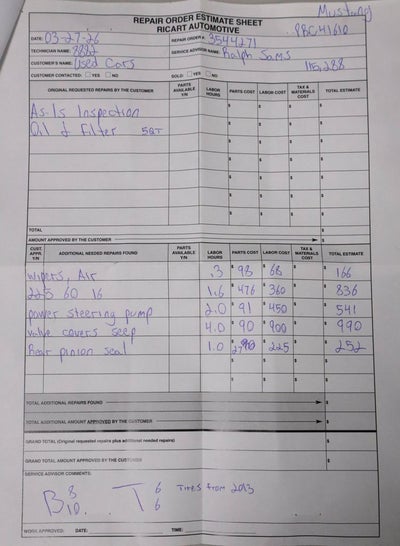 Mustang
REPAIR ORDER ESTIMATE SHEET
RICART AUTOMOTIVE
PBC41610
DATE: 03-27-26 REPAIR ORDER # 3544271
TECHNICIAN NAME: 8882 SERVICE ADVISOR NAME: Ralph Sams
CUSTOMER'S NAME: Used Cars 115,288
CUSTOMER CONTACTED: YES NO SOLD: YES NO
ORIGINAL REQUESTED REPAIRS BY THE CUSTOMER PARTS AVAILABLE Y/N LABOR HOURS PARTS COST LABOR COST TAX & MATERIALS COST TOTAL ESTIMATE
As-Is Inspection $ $ $ $
Oil & Filter 5QT $ $ $ $
TOTAL $
AMOUNT APPROVED BY THE CUSTOMER $
CUST. APPR. Y/N ADDITIONAL NEEDED REPAIRS FOUND PARTS AVAILABLE Y/N LABOR HOURS PARTS COST LABOR COST TAX & MATERIALS COST TOTAL ESTIMATE
Wipers, Air .3 $ 98 $ 68 $ $ 166
225 60 16 1.6 $ 476 $ 360 $ $ 836
power steering pump 2.0 $ 91 $ 450 $ $ 541
Valve covers seep 4.0 $ 90 $ 900 $ $ 990
Rear pinion seal 1.0 $ $ 225 $ $ 252
TOTAL ADDITIONAL REPAIRS FOUND $
TOTAL ADDITIONAL AMOUNT APPROVED BY THE CUSTOMER $
GRAND TOTAL (Original requested repairs plus additional needed repairs) $
GRAND TOTAL AMOUNT APPROVED BY THE CUSTOMER $
SERVICE ADVISOR COMMENTS:
B 8 10. T 6 6 Tires from 2013
WORK APPROVED: DATE: TIME: